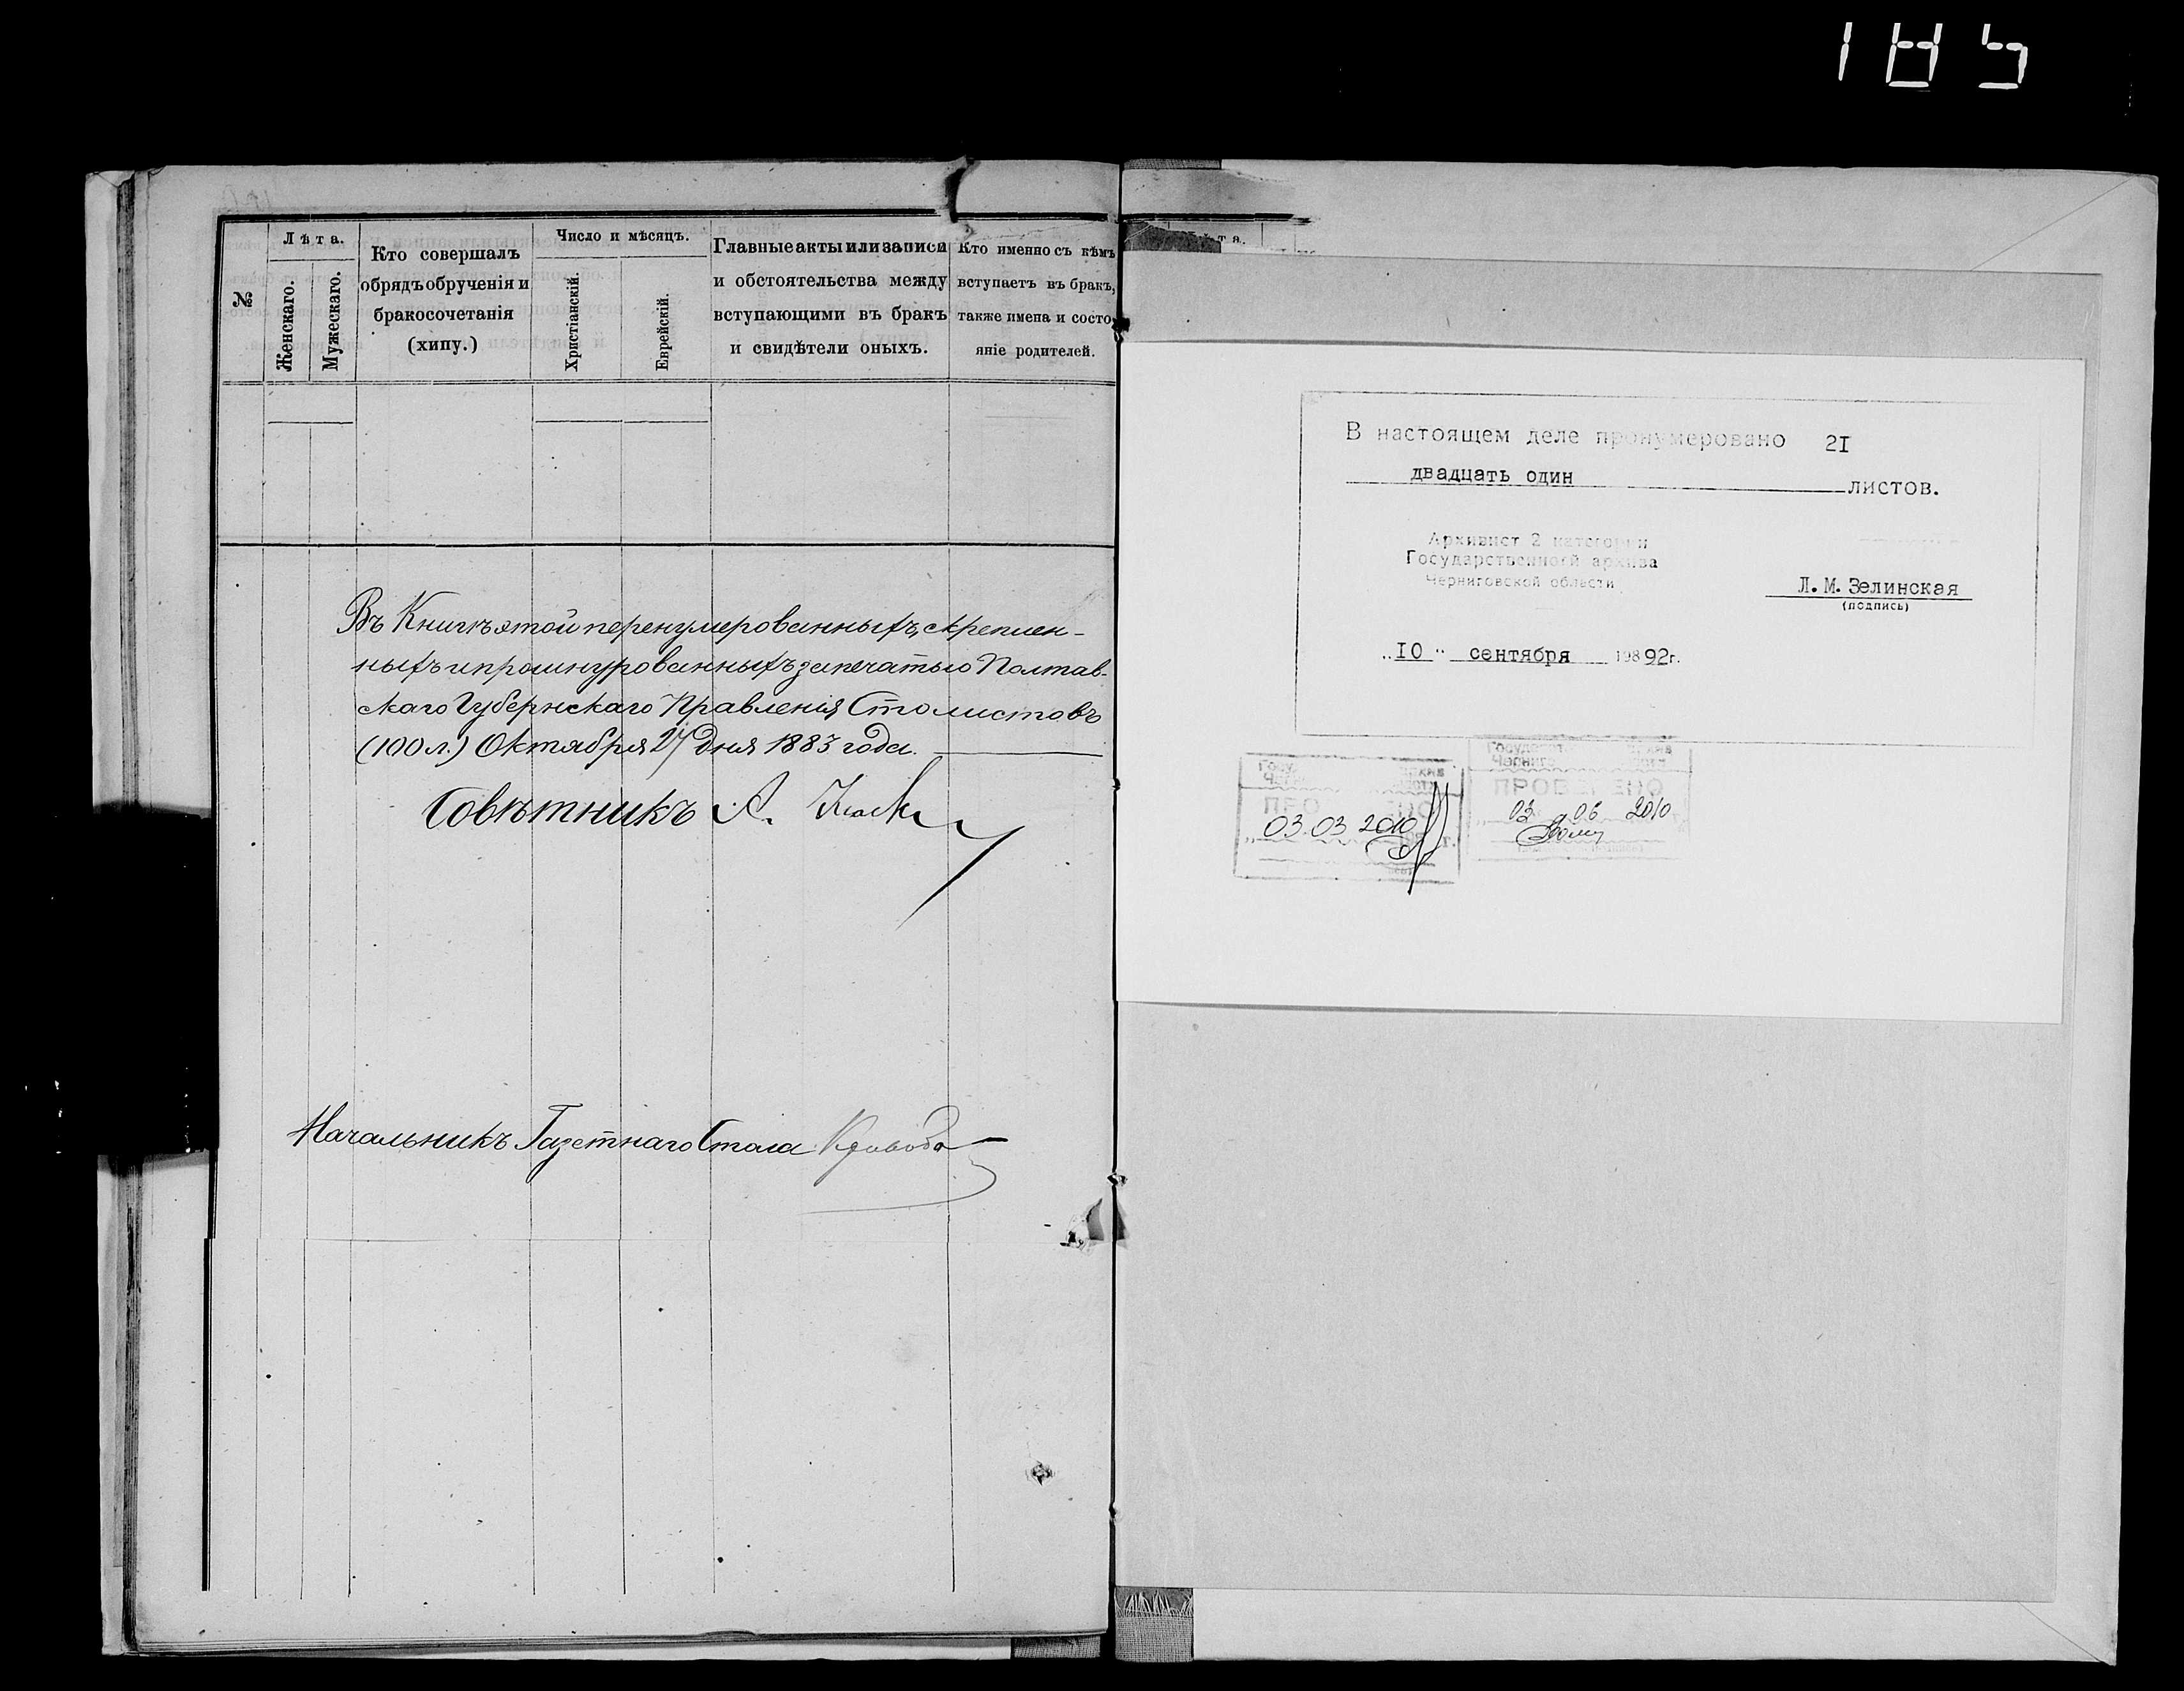 185
№
Лѣта.
Женскаго.
Мужескаго.
Кто совершалъ
обрядъ обрученія и
бракосочетанія
(хипу.)
Число и мѣсяцъ.
Христіанскій.
Еврейскій.
Главные акты или записи
и обстоятельства между
вступающими въ бракъ
и свидѣтели оныхъ.
Кто именно съ кѣмъ
вступаетъ въ бракъ,
также имена и состо-
яніе родителей.
Въ Книгѣ этой перенумерованныхъ, скреплен-
ныхъ и прошнурованныхъ за печатью Полтав-
скаго Губернскаго Правленія Сто листовъ
(100 л.) Октября 27 дня 1883 года.
Совѣтникъ А.
Начальникъ Газетнаго Стола
В настоящем деле пронумеровано 21
двадцать один листов.
Архивист 2 категории
Государственной архива
Черниговской области
Л.М.Зелинская
(подпись)
„10" сентября 19892г.
ПРОВЕРЕНО
03.03 2010 г.
ПРОВЕРЕНО
03 06 2010